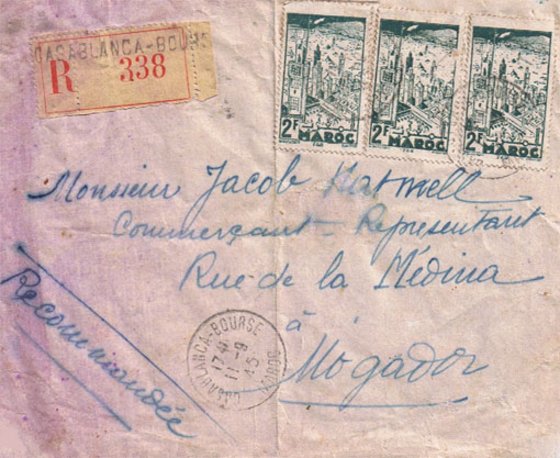 CASABLANCA-BOURSE
R 338
2F MAROC
2F MAROC
2F MAROC
Monsieur Jacob
Commerçant - Représentant
Rue de la Médina
à
Mogador
Recommandée
CASABLANCA-BOURSE
11-9
45
MAROC